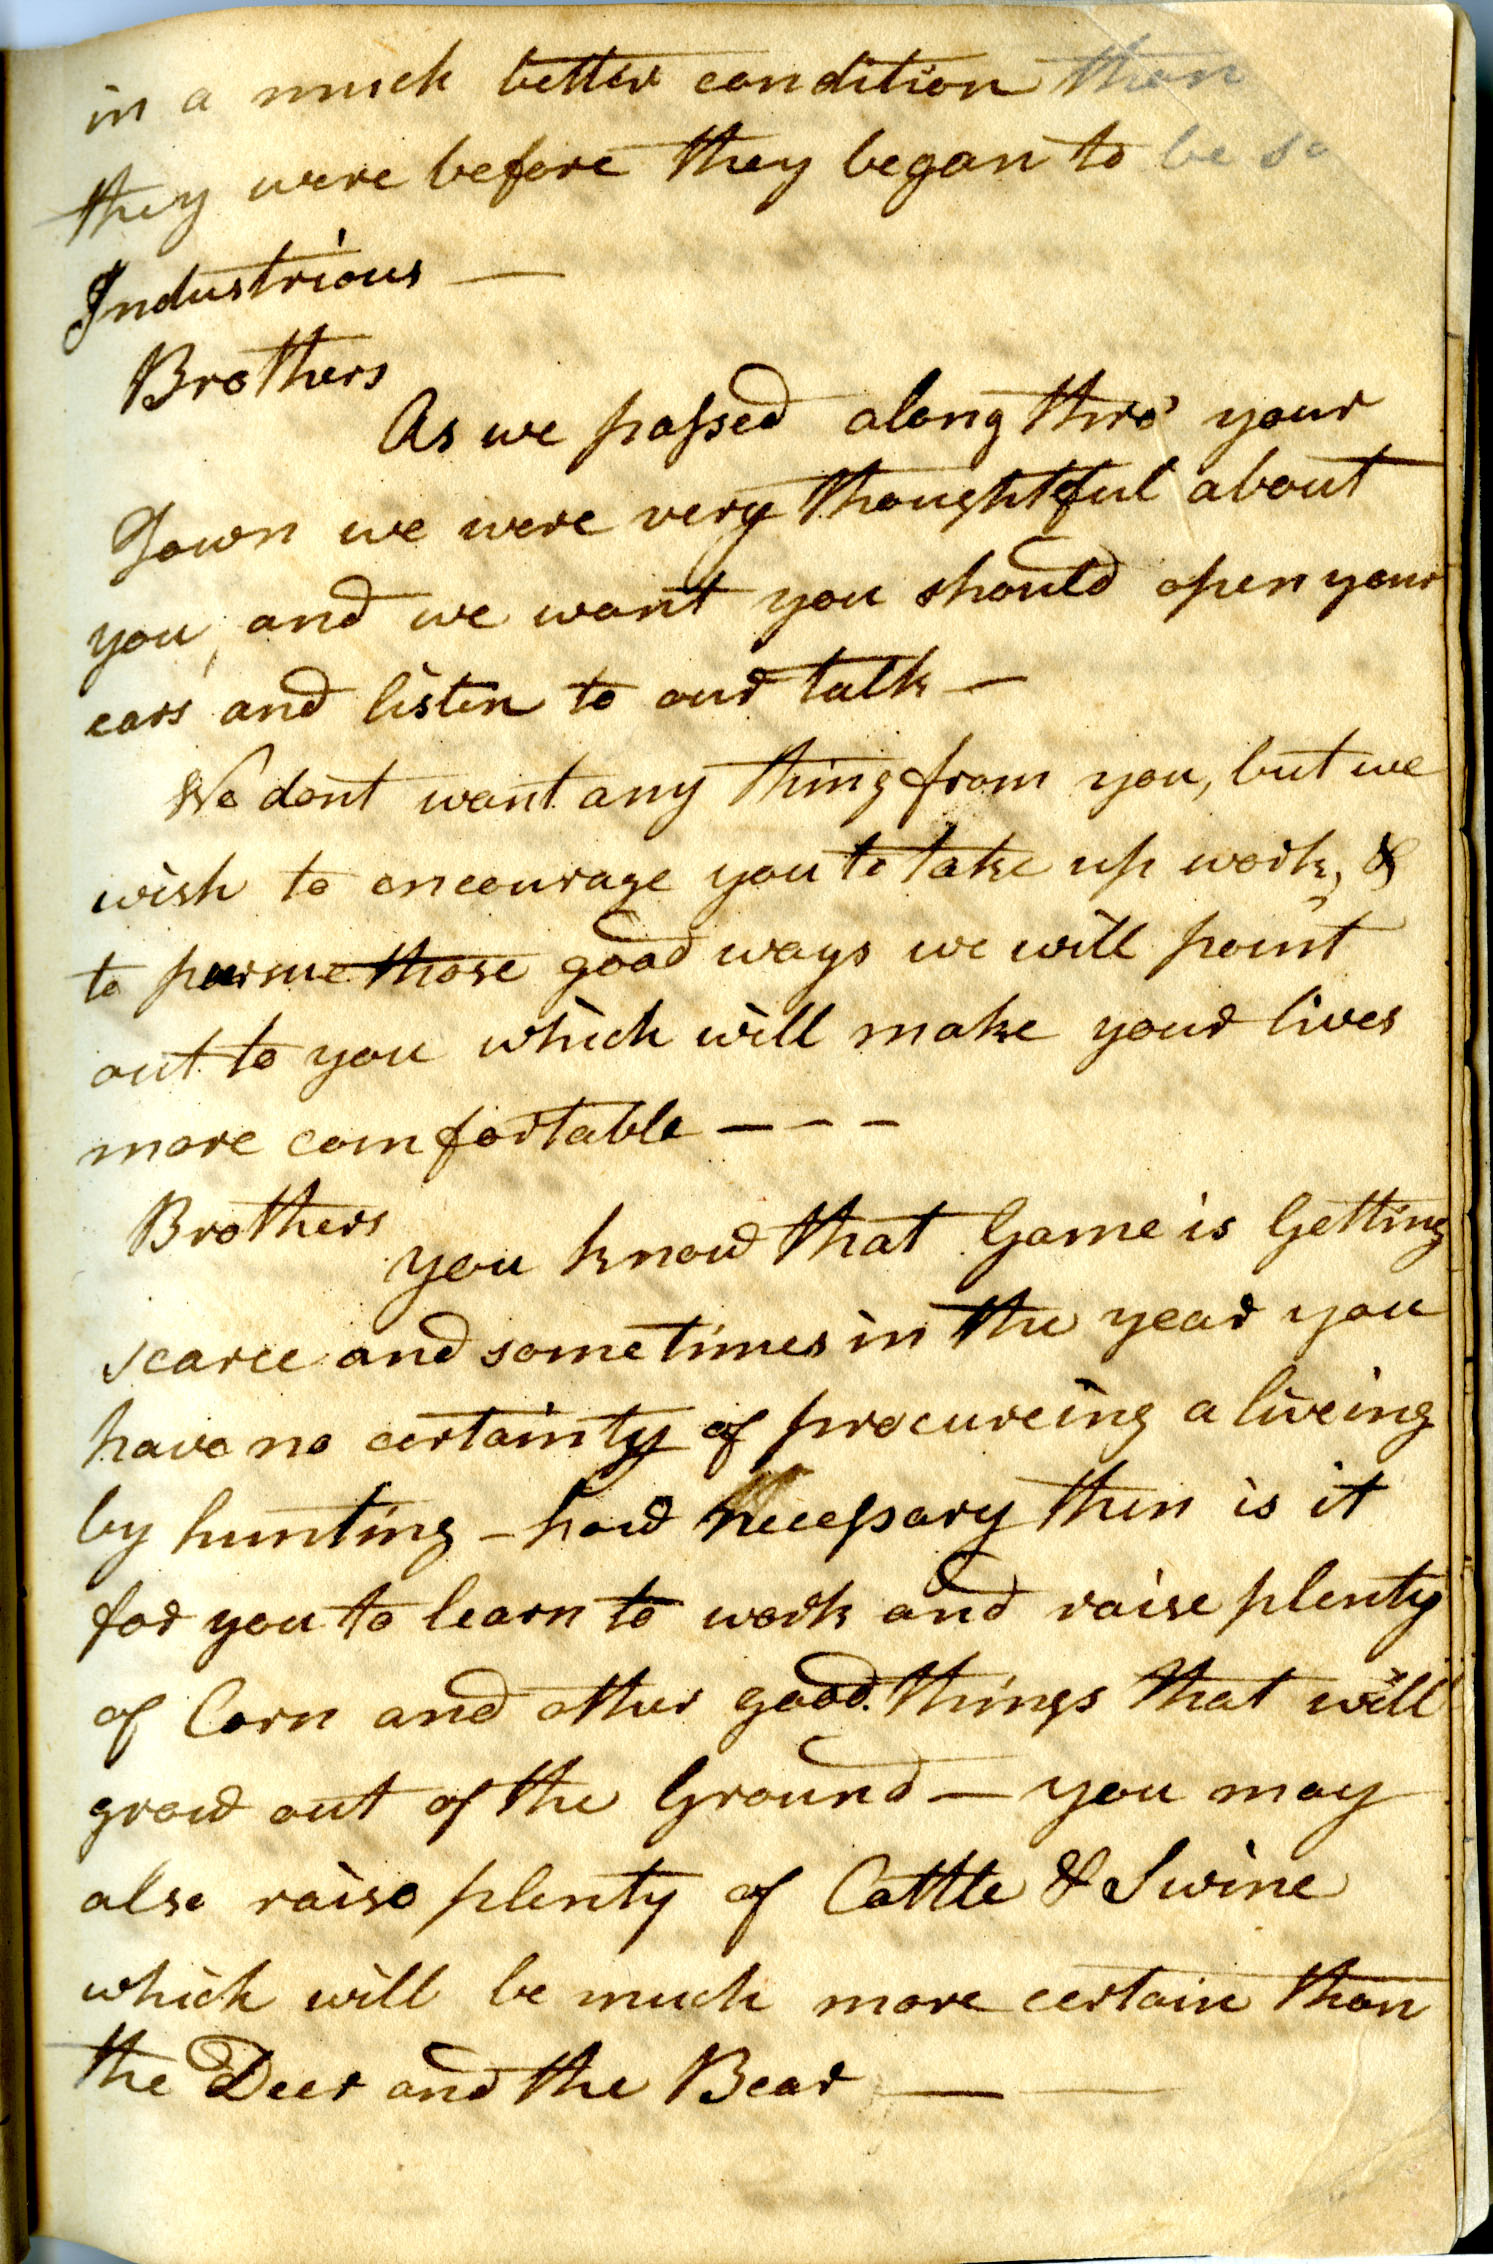 in a much better condition than
they were before they began to be so
Industrious —
Brothers
As we passed along thro' your
Town we were very thoughtful about
you, and we want you should open your
ears and listen to our talk —
We dont want any thing from you, but we
wish to encourage you to take up work, &
to pursue those good ways we will point
out to you which will make your lives
more comfortable — – –
Brothers
you know that Game is Getting
scarce and sometimes in the year you
have no certainty of procureing a liveing
by hunting – how necessary then is it
for you to learn to work and raise plenty
of Corn and other good things that will
grow out of the Ground — you may
also raise plenty of Cattle & Swine
which will be much more certain than
the Deer and the Bear —